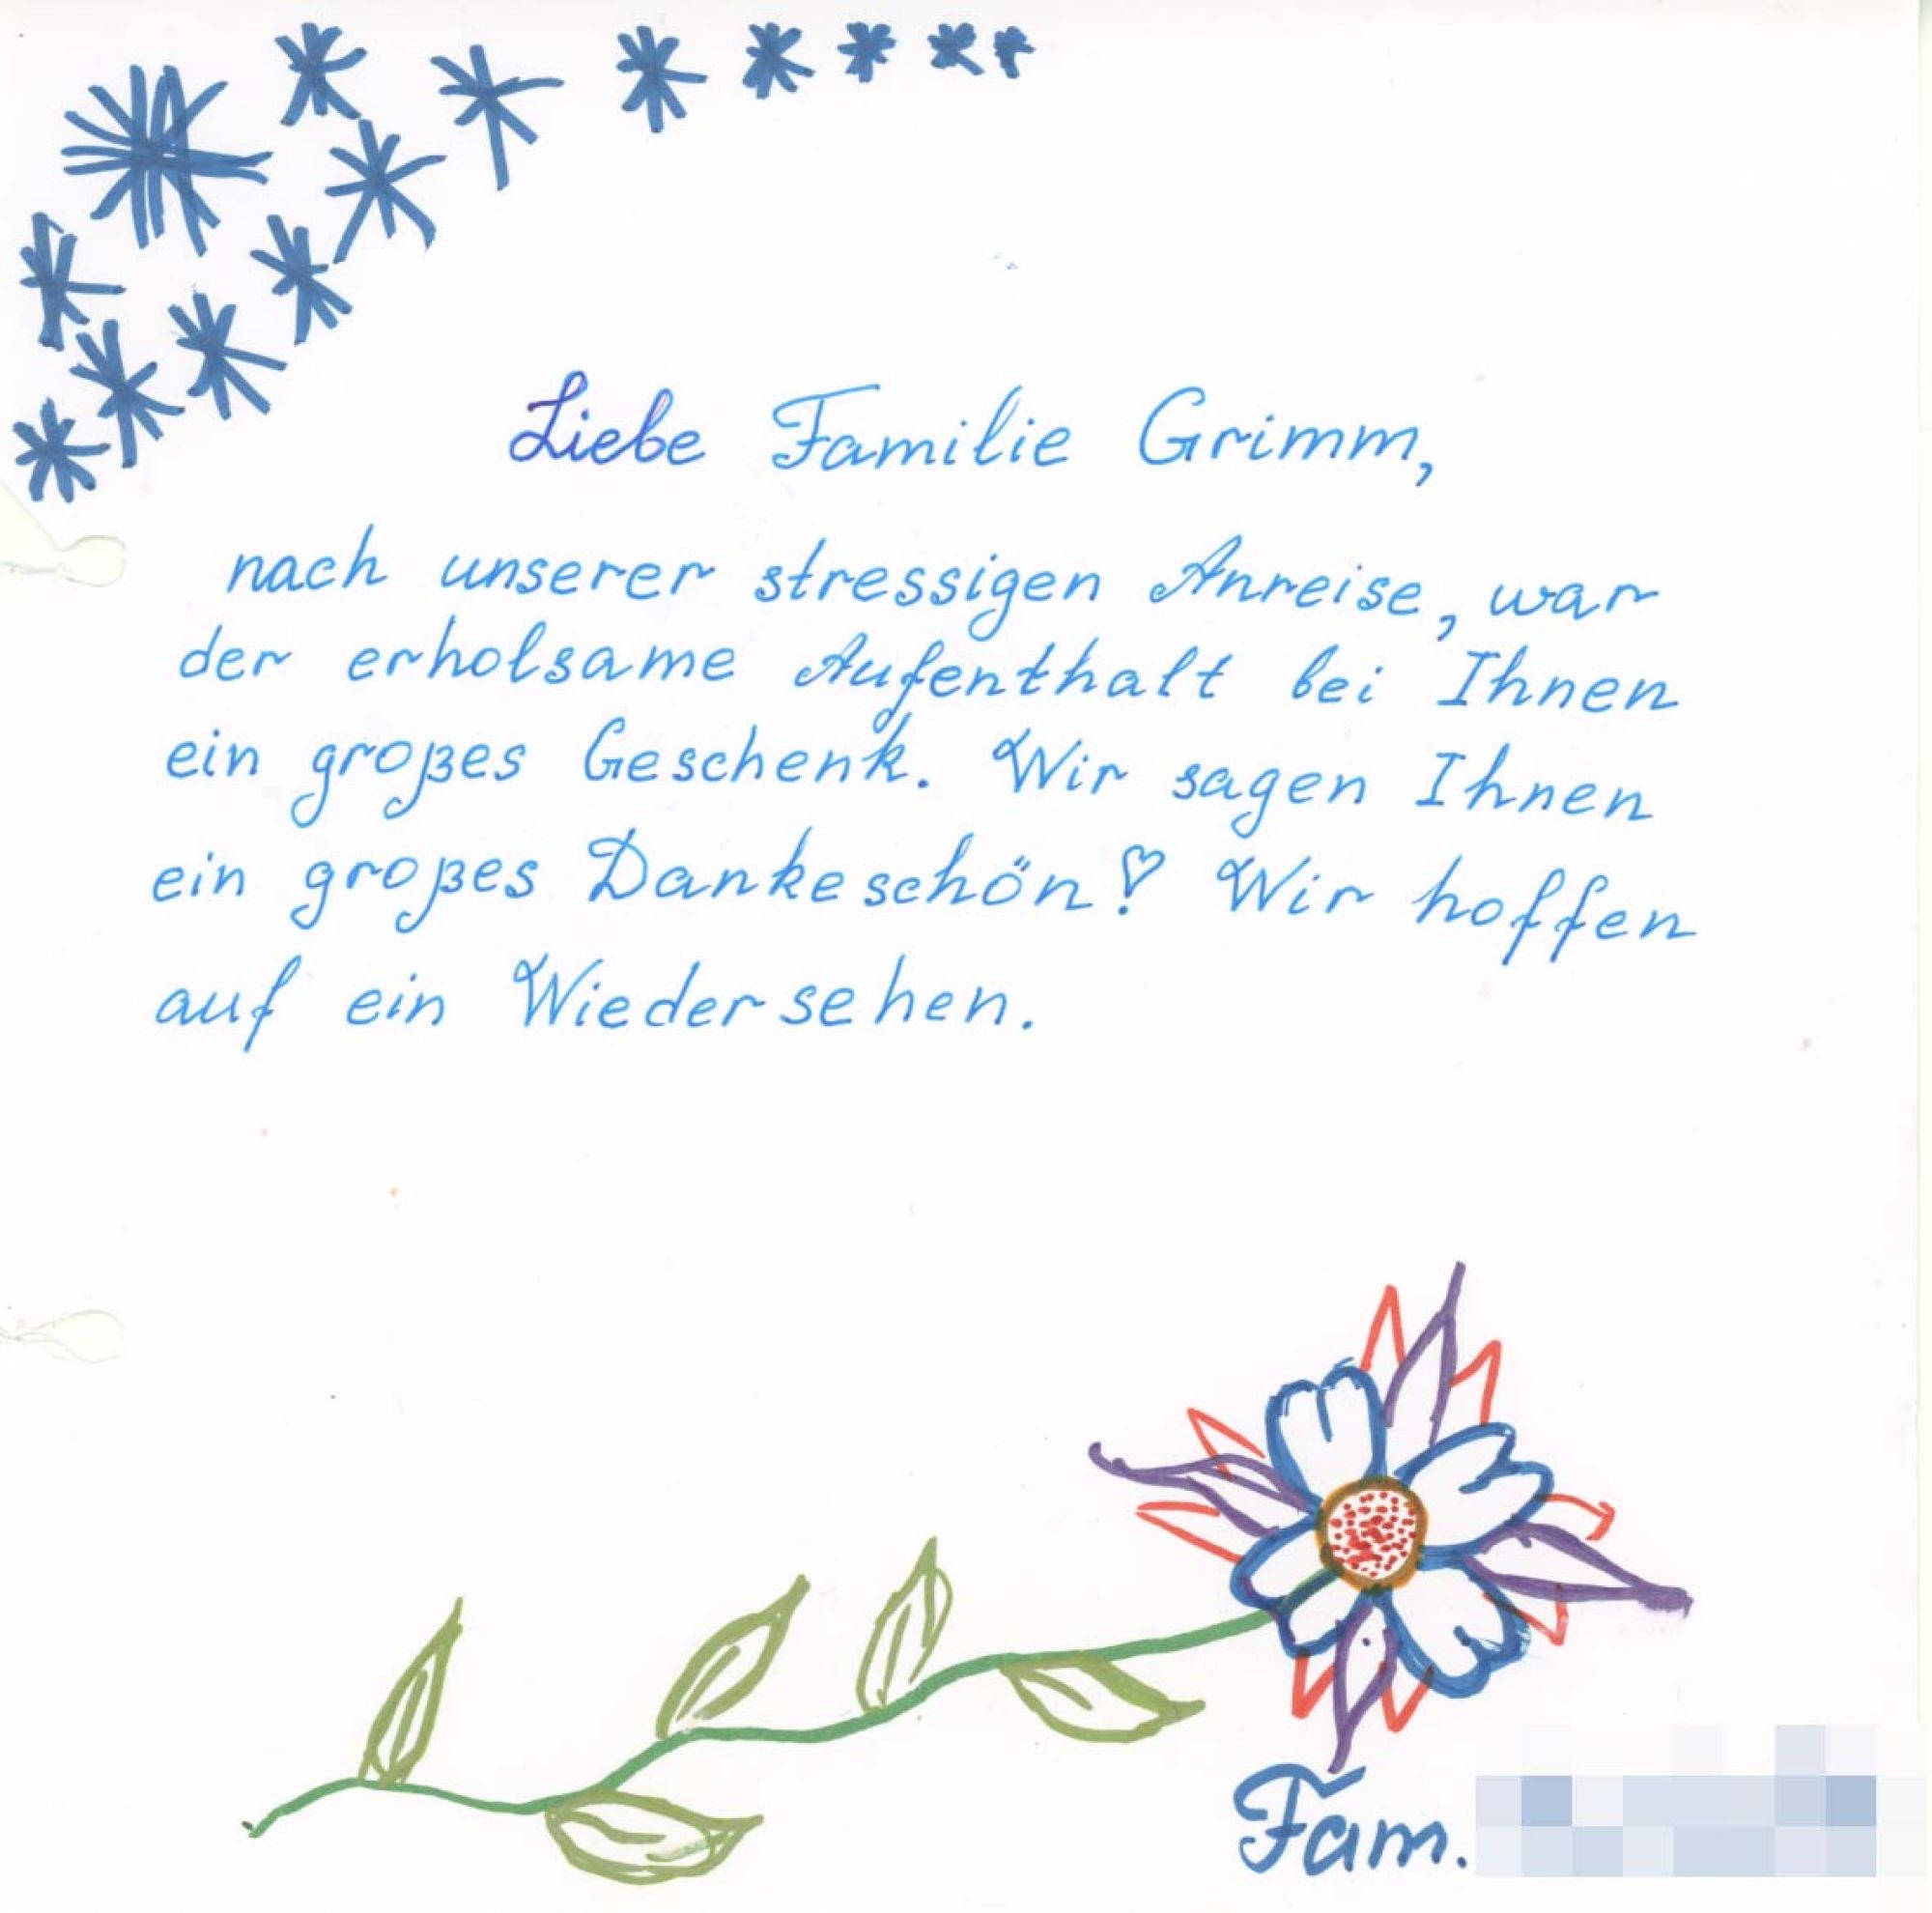 Liebe Familie Grimm,
nach unserer stressigen Anreise, war
der erholsame Aufenthalt bei Ihnen
ein großes Geschenk. Wir sagen Ihnen
ein großes Dankeschön! Wir hoffen
auf ein Wiedersehen.
Fam.